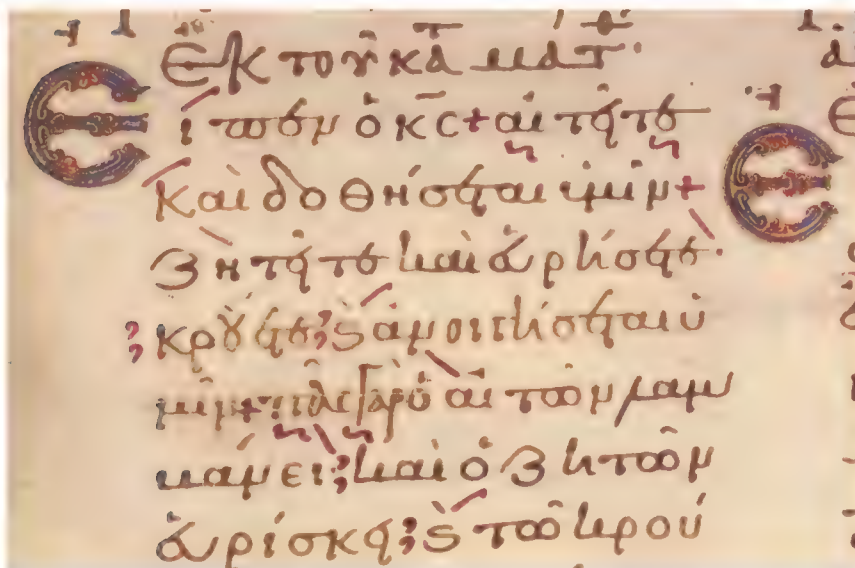 Ἐκ τοῦ κα ματ
Εἶπεν ὁ κς + αἰτεῖτε
καὶ δοθήσεται ὑμῖν +
ζητεῖτε καὶ εὑρήσετε·
κρούετε; ϛ ἀνοιγήσεται ὑ
μῖν + γὰρ ὁ αἰτῶν λαμ
βάνει; καὶ ὁ ζητῶν
εὑρίσκει; ϛ τῶ κρού